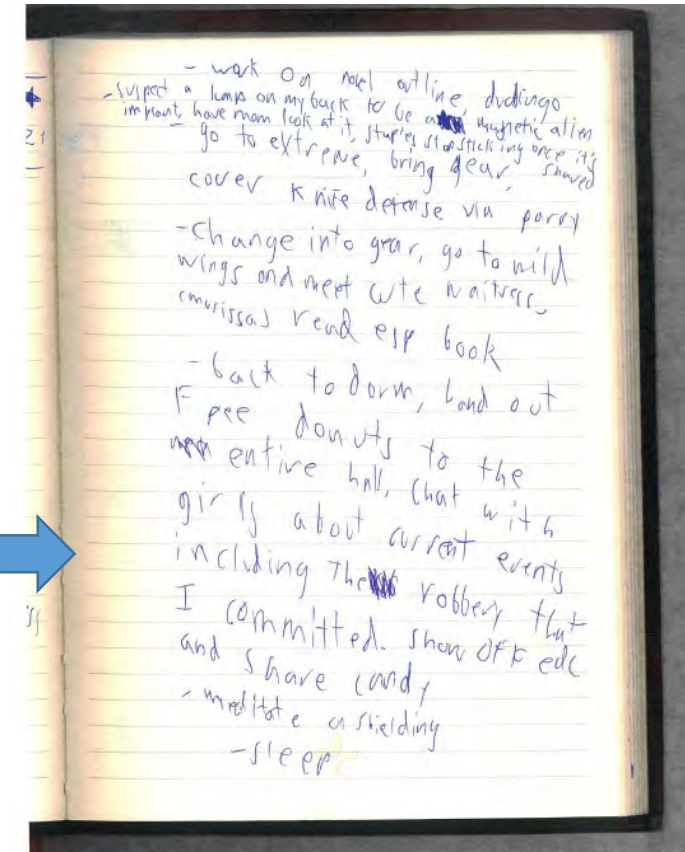 - work on novel outline, duolingo
-suspect a lump on my back to be a magnetic alien
implant, have mom look at it, staples stop sticking once it's
shaved
- go to extreme, bring gear,
cover knife defense via parry
-change into gear, go to wild
wings and meet cute waitress,
(marissa) read esp book
-back to dorm, hand out
free donuts to the
entire hall, chat with
girls about current events
including the robbery that
I committed. show off edc
and share candy
- meditate on shielding
-sleep
21